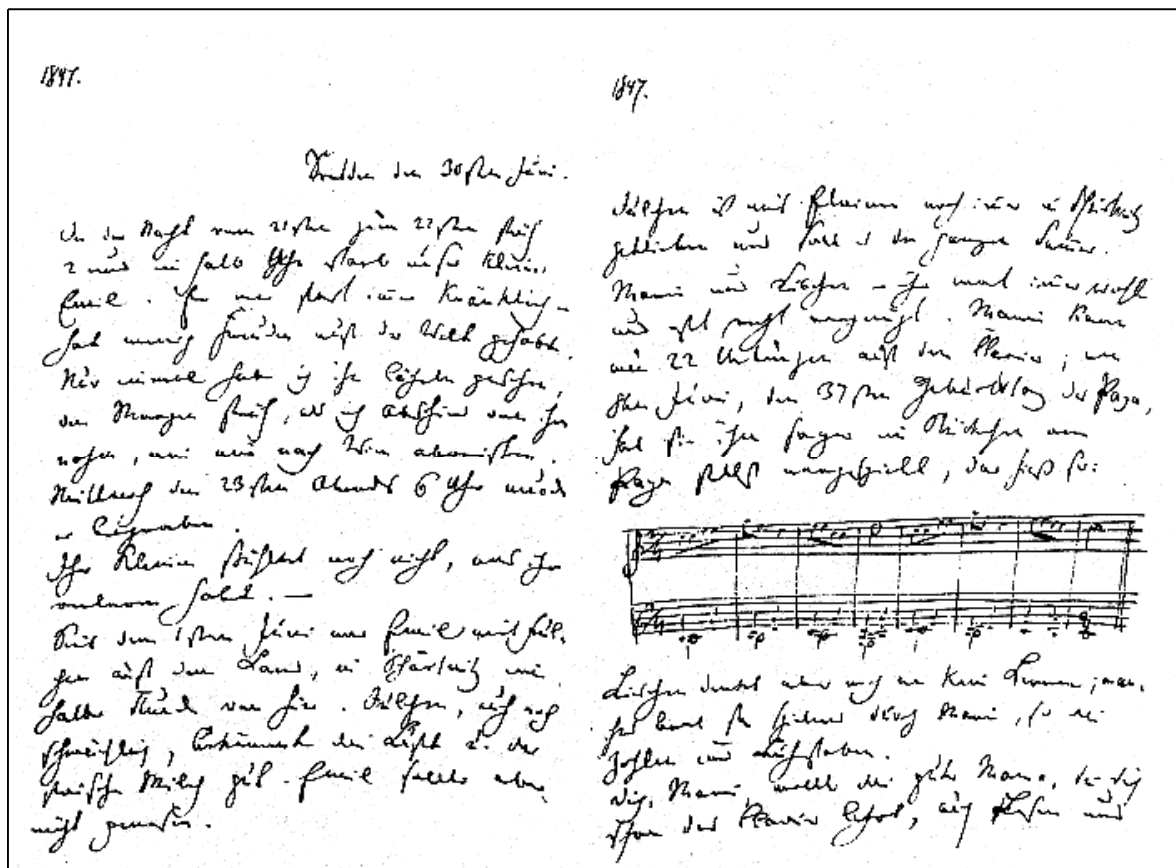 1847.
Dresden den 30sten Juni.
In der Nacht vom 21sten zum 22sten früh
2 und ein halb Uhr starb unser kleiner
Emil. Er war fast immer kränklich –
hat wenig Freuden auf der Welt gehabt.
Nur einmal hab ich ihn lächeln gesehen,
den Morgen früh, als ich Abschied von ihm
nahm, wie wir nach Wien abreisten.
Mittwoch den 23sten Abends 6 Uhr wurde
er begraben.
Ihr Kleinen fühltet noch nicht, was ihr
verloren habt. —
Seit dem 1sten Juni war Emil mit Jul-
chen auf dem Land, in eine
halbe Stunde von hier. Julchen, auch noch
schwächlich, bekommt die Luft u. die
frische Milch gut. Emil sollte aber
nicht genesen.
1847.
Julchen ist mit noch immer in
geblieben und soll es den ganzen Sommer.
Marie und Lischen – ihr wart immer wohl
und seht recht vergnügt. Marie kann
nun 22 Übungen auf dem Klavier; am
8ten Juni, dem 37sten Geburtstag des Papa,
hat sie ihm sogar ein Stückchen vom
Papa selbst vorgespielt, das hieß so:
Lischen denkt aber noch an kein Lernen; man-
ches lernt sie durch Marie, so die
Zahlen und Buchstaben.
Dich, Marie, wollte die gute Mama, die dich
schon das Klavier lehrt, auch Lesen und